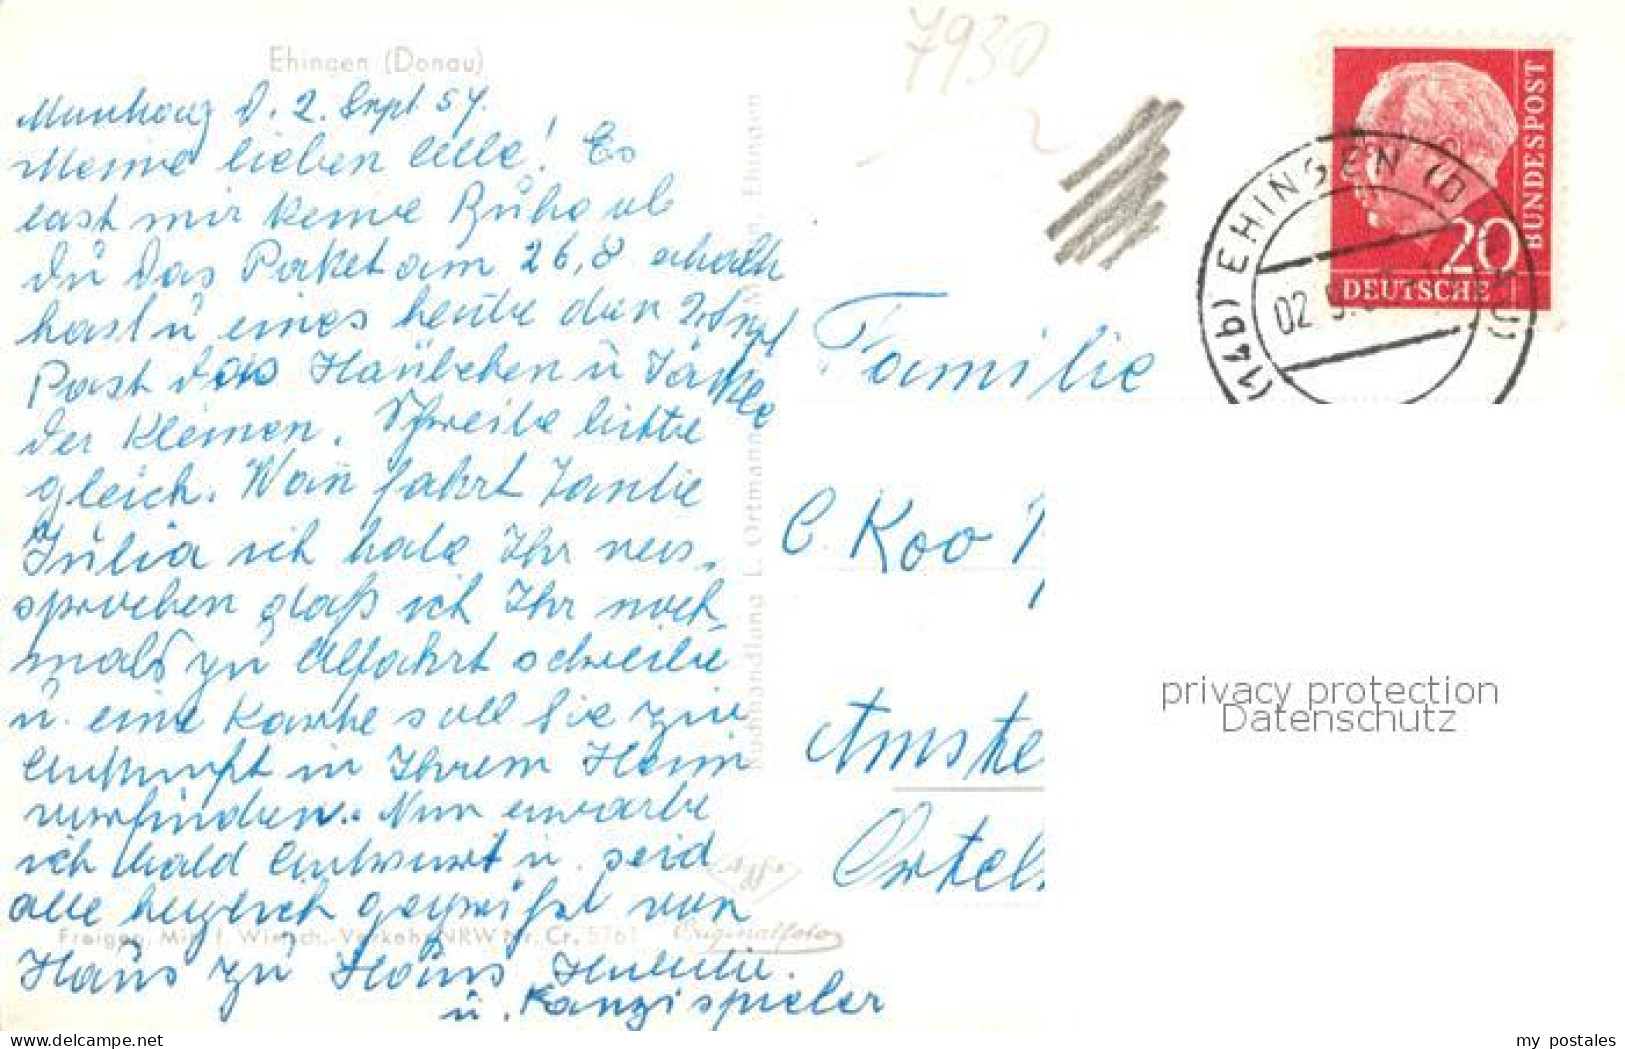 7930
Ehingen (Donau)
d. 2. Sept 57.
Meine lieben alle! Es
last mir keine Ruhe ob
du das Paket am 26,8 erhalten
hast u eines heute den 2. Sept
Post das Häubchen u Jäckle
der Kleinen. Schreibe bitte
gleich. Wan fahrt Tantie
Julia ich habe Ihr vers.
sprochen daß ich Ihr noch
mals zu Abfahrt schreibe
u. eine Karte soll Sie zur
Ankunft in Ihrem Heim
vorfinden. Nun erwarte
ich bald Antwort u. seid
alle herzlich gegrüßt von
Haus zu Haus
u. Kanzispieler
Buchhandlung L. Ortmann, Ehingen
Freigeg. Min. f. Wirtsch.-Verkehr NRW Nr. Cr. 5761
Agfa
Originalfoto
Familie
C. Koo
Amste
Ortel
BUNDESPOST
20
DEUTSCHE
(14b) EHINGEN (DONAU)
02
privacy protection
Datenschutz
www.delcampe.net
my_postales